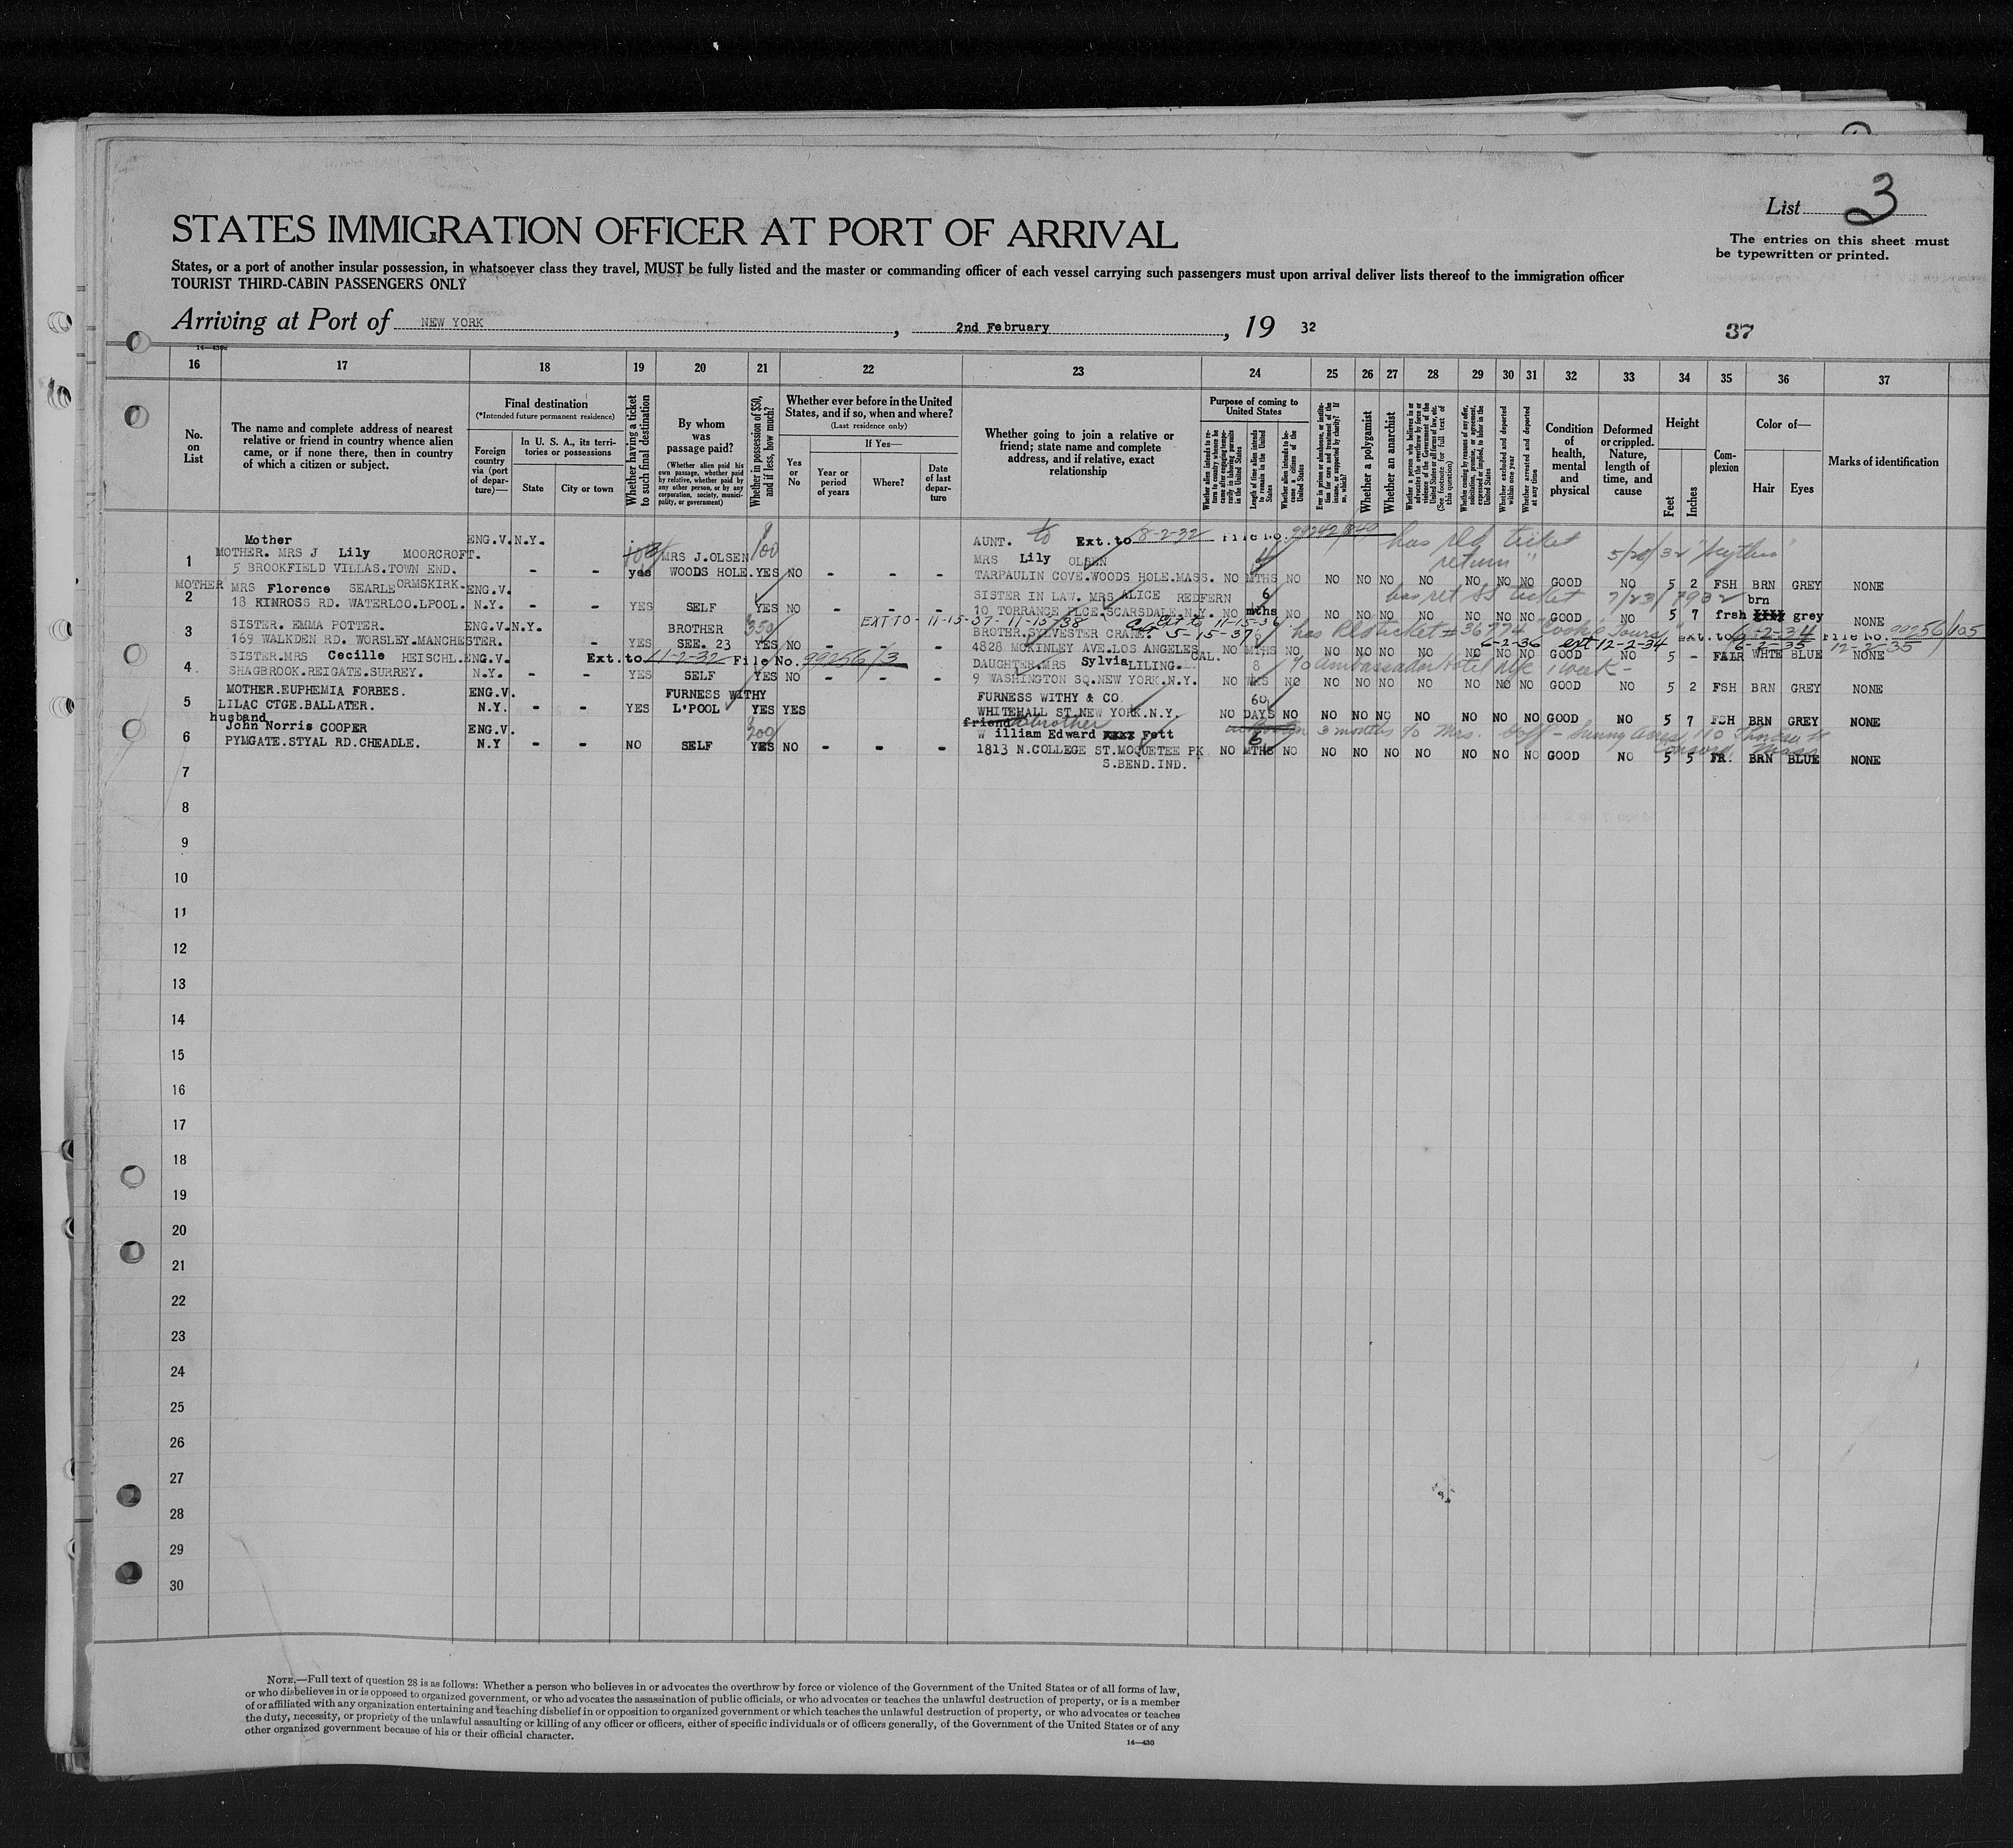 List 3
The entries on this sheet must
be typewritten or printed.
STATES IMMIGRATION OFFICER AT PORT OF ARRIVAL
States, or a port of another insular possession, in whatsoever class they travel, MUST be fully listed and the master or commanding officer of each vessel carrying such passengers must upon arrival deliver lists thereof to the immigration officer
TOURIST THIRD-CABIN PASSENGERS ONLY
Arriving at Port of NEW YORK, 2nd February, 19 32
37
16 17 18 19 20 21 22 23 24 25 26 27 28 29 30 31 32 33 34 35 36 37
No. on List
The name and complete address of nearest
relative or friend in country whence alien
came, or if none there, then in country
of which a citizen or subject.
Final destination
(*Intended future permanent residence)
Foreign country via (port of departure)—
In U. S. A., its territories or possessions
State
City or town
Whether having a ticket to such final destination
By whom was passage paid?
(Whether alien paid his own passage, whether paid by relative, whether paid by any other person, or by any corporation, society, municipality, or government)
Whether in possession of $50, and if less, how much?
Whether ever before in the United States, and if so, when and where?
(Last residence only)
Yes or No
If Yes—
Year or period of years
Where?
Date of last departure
Whether going to join a relative or
friend; state name and complete
address, and if relative, exact
relationship
Purpose of coming to United States
Whether alien intends to return to country whence he came after engaging temporarily in laboring pursuits in the United States
Length of time alien intends to remain in the United States
Whether alien intends to become a citizen of the United States
Ever in prison or almshouse, or institution for care and treatment of the insane, or supported by charity? If so, which?
Whether a polygamist
Whether an anarchist
Whether a person who believes in or advocates the overthrow by force or violence of the Government of the United States or all forms of law, etc. (See footnote for full text of this question)
Whether coming by reason of any offer, solicitation, promise, or agreement, expressed or implied, to labor in the United States
Whether excluded and deported within one year
Whether arrested and deported at any time
Condition of health, mental and physical
Deformed or crippled. Nature, length of time, and cause
Height
Feet
Inches
Complexion
Color of—
Hair
Eyes
Marks of identification
Mother ENG.V.N.Y. AUNT. to Ext. to 8-2-32 File No. 99242/849 has rld ticket
1 MOTHER. MRS J Lily MOORCROFT. MRS J.OLSEN 100 MRS Lily OLSEN return 5/20/32 "Scythia"
5 BROOKFIELD VILLAS.TOWN END. - - yes WOODS HOLE. YES NO - - - TARPAULIN COVE.WOODS HOLE.MASS. NO MTHS NO NO NO NO NO NO NO NO GOOD NO 5 2 FSH BRN GREY NONE
ORMSKIRK.
2 MOTHER MRS Florence SEARLE ENG.V. SISTER IN LAW. MRS ALICE REDFERN 6 has ret SS ticket 7/23/1932 brn
18 KINROSS RD. WATERLOO.LPOOL. N.Y. - - YES SELF YES NO - - - 10 TORRANCE PLCE.SCARSDALE.N.Y. NO mths NO NO NO NO NO NO NO NO GOOD NO 5 7 frsh grey NONE
EXT TO - 11-15-37 - 11-15-38 Ext to 11-15-36
3 SISTER. EMMA POTTER. ENG.V.N.Y. BROTHER 350 BROTHR.SYLVESTER CRANE. 5-15-37 6 has Rld ticket # 36774 Cook's Tours Ext. to 6-2-34 File No. 99256/105
169 WALKDEN RD. WORSLEY.MANCHESTER. - YES SEE. 23 YES NO - - - 4828 MCKINLEY AVE.LOS ANGELES CAL. NO MTHS NO NO NO NO NO NO NO NO GOOD NO 5 - FAIR WHTE BLUE NONE
6-2-36 ext 12-2-34 6-2-35 12-2-35
4 SISTER.MRS Cecille HEISCHL. ENG.V. Ext. to 11-2-32 File No. 99256/3 DAUGHTER.MRS Sylvia LILING. 8 c/o Ambassador Hotel NYC 1 week -
SHAGBROOK.REIGATE.SURREY. N.Y. - - YES SELF YES NO - - - 9 WASHINGTON SQ.NEW YORK.N.Y. NO WKS NO NO NO NO NO NO NO NO GOOD NO 5 2 FSH BRN GREY NONE
5 MOTHER.EUPHEMIA FORBES. ENG.V. FURNESS WITHY FURNESS WITHY & CO. 60
LILAC CTGE.BALLATER. N.Y. - - YES L'POOL YES YES WHITEHALL ST.NEW YORK.N.Y. NO DAYS NO NO NO NO NO NO NO NO GOOD NO 5 7 FSH BRN GREY NONE
6 husband friend brother
John Norris COOPER ENG.V. 200 William Edward Fett 6 3 months c/o Mrs. Goff - Sunny Acres, 110 Lincoln St
PYMGATE.STYAL RD.CHEADLE. N.Y - - NO SELF YES NO - - - 1813 N.COLLEGE ST.MOQUETEE PK NO MTHS NO NO NO NO NO NO NO NO GOOD NO 5 5 FR. BRN BLUE NONE
Concord, Mass
S.BEND.IND.
7
8
9
10
11
12
13
14
15
16
17
18
19
20
21
22
23
24
25
26
27
28
29
30
NOTE.—Full text of question 28 is as follows: Whether a person who believes in or advocates the overthrow by force or violence of the Government of the United States or of all forms of law,
or who disbelieves in or is opposed to organized government, or who advocates the assassination of public officials, or who advocates or teaches the unlawful destruction of property, or is a member
of or affiliated with any organization entertaining and teaching disbelief in or opposition to organized government or which teaches the unlawful destruction of property, or who advocates or teaches
the duty, necessity, or propriety of the unlawful assaulting or killing of any officer or officers, either of specific individuals or of officers generally, of the Government of the United States or of any
other organized government because of his or their official character.
14—430